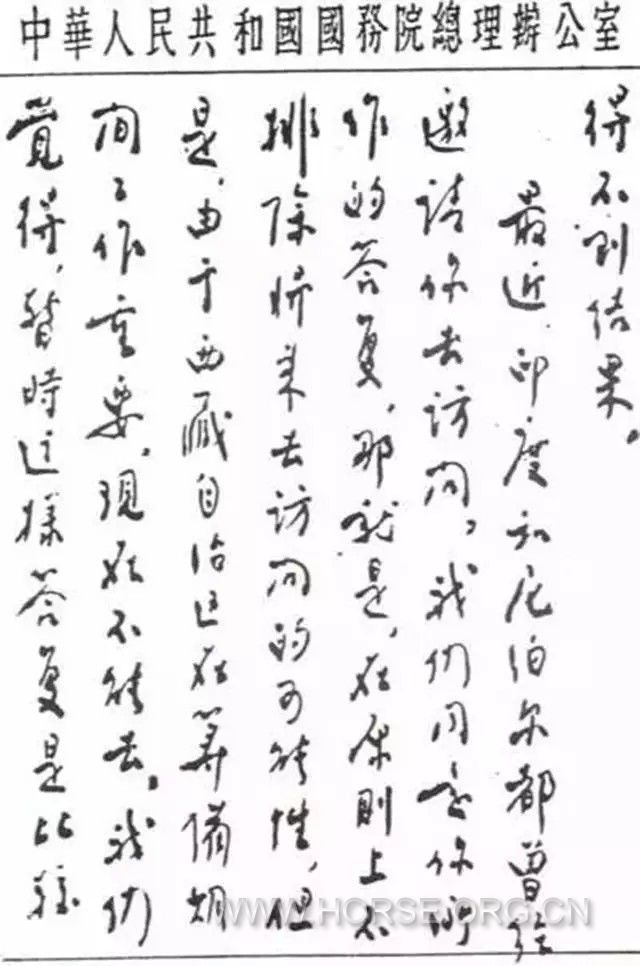 中華人民共和國國務院總理辦公室
得不到结果。
最近，印度和尼泊尔都曾經
邀請你去访问。我们同意你所
作的答复，那就是，在原則上不
排除将来去访问的可能性，但
是，由于西藏自治区在筹備期
间工作重要，現在不能去。我们
覺得，暫時这樣答复是比較
WWW.HORSE.ORG.CN